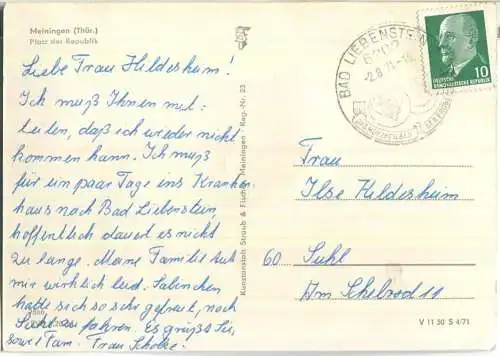 Meiningen (Thür.)
Platz der Republik
Liebe Frau Hildesheim!
Ich muß Ihnen mit-
teilen, daß ich wieder nicht
kommen kann. Ich muß
für ein paar Tage ins Kranken-
haus nach Bad Liebenstein,
hoffentlich dauert es nicht
zu lange. Meine Familie tut
mir wirklich leid. Sabinchen
hatte sich so sehr gefreut, nach
Suhl zu fahren. Es grüßt Sie,
sowie Fam. Frau Scholze.
Kunstanstalt Straub & Fischer Meiningen · Reg.-Nr. 23
BAD LIEBENSTEIN
-2.8.71-
DEUTSCHE
DEMOKRATISCHE REPUBLIK
10
Frau
Ilse Hildesheim
60 Suhl
Am Schelrod 11
V 11 50 S 4/71